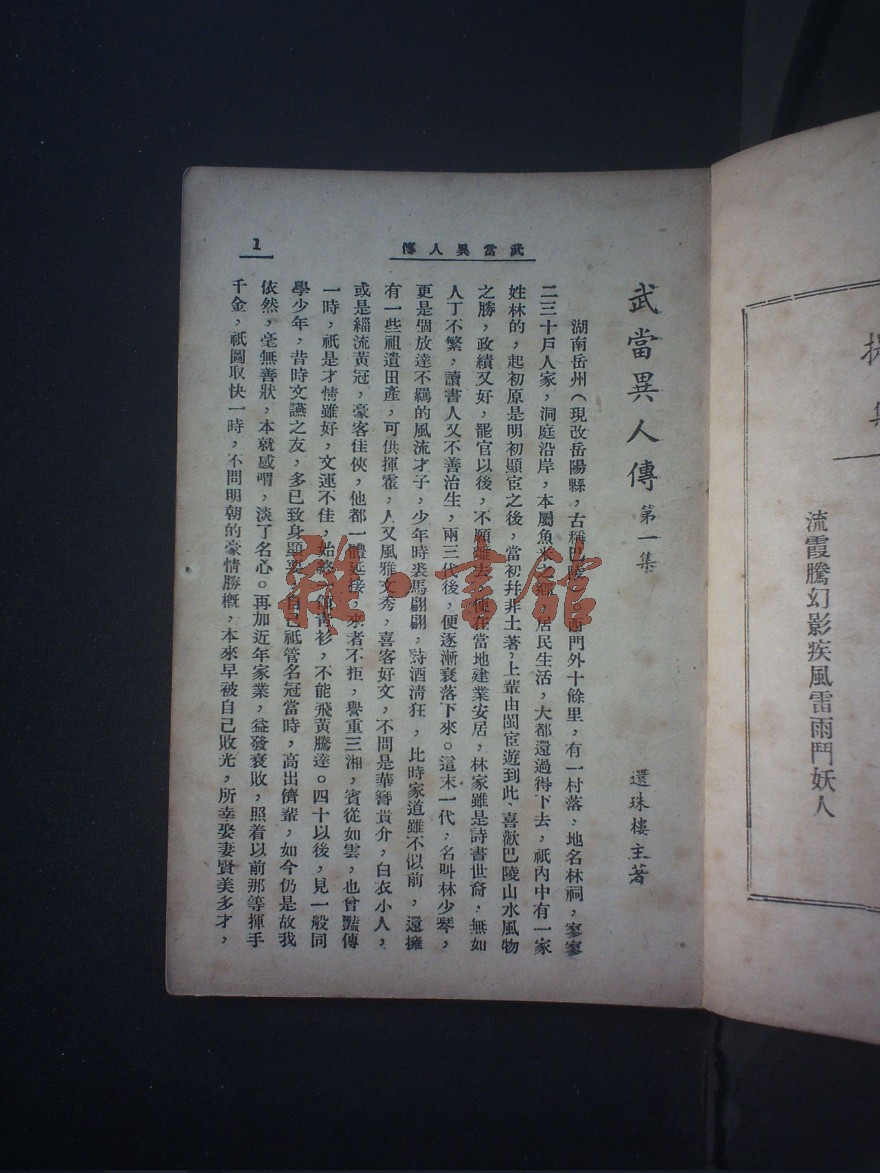 提
集
流霞騰幻影疾風雷雨鬥妖人
武當異人傳
1
武當異人傳 第一集
還珠樓主著
湖南岳州(現改岳陽縣,古稱巴陵)。西門外十餘里,有一村落,地名林祠,寥寥
二三十戶人家,洞庭沿岸,本屬魚米之鄉,居民生活,大都還過得下去,祇內中有一家
姓林的,起初原是明初顯宦之後,當初幷非土著,上輩由閩宦遊到此、喜歡巴陵山水風物
之勝,政績又好,罷官以後,不願離去,便在當地建業安居,林家雖是詩書世裔,無如
人丁不繁,讀書人又不善治生,兩三代後,便逐漸衰落下來。這末一代,名叫林少琴,
更是個放達不羈的風流才子,少年時裘馬翩翩,詩酒清狂,比時家道雖不似前,還擁
有一些祖遺田產,可供揮霍,人又風雅文秀,喜客好文,不問是華簪貴介,白衣小人,
或是緇流黃冠,豪客佳俠,他都一體延接,來者不拒,譽重三湘,賓從如雲,也曾豔傳
一時,祇是才情雖好,文運不佳,始終一領青衫,不能飛黃騰達。四十以後,見一般同
學少年,昔時文讌之友,多已致身顯要,自己祇管名冠當時,高出儕輩,如今仍是故我
依然,毫無善狀,本就感喟,淡了名心。再加近年家業,益發衰敗,照着以前那等揮手
千金,祇圖取快一時,不問明朝的豪情勝概,本來早被自己敗光,所幸娶妻賢美多才,
雜·書館